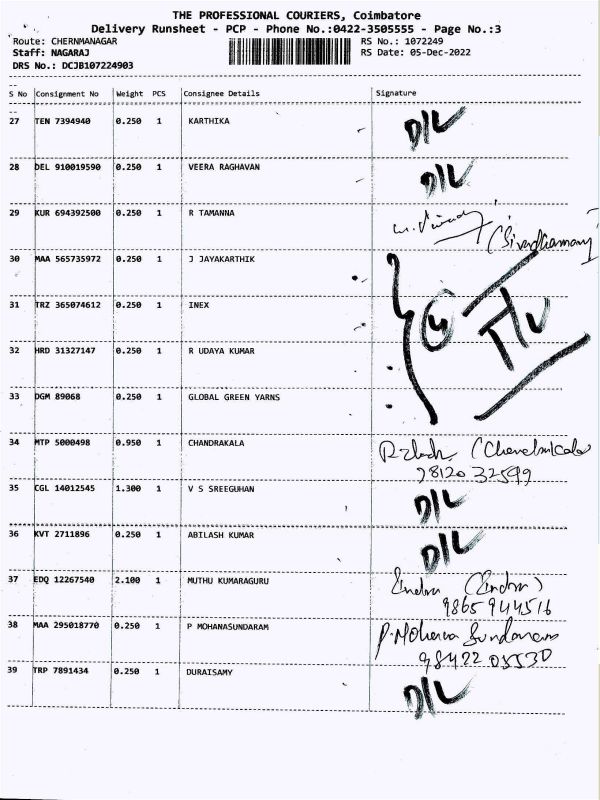 THE PROFESSIONAL COURIERS, Coimbatore
Delivery Runsheet - PCP - Phone No.:0422-3505555 - Page No.:3
Route: CHERNMANAGAR RS No.: 1072249
Staff: NAGARAJ RS Date: 05-Dec-2022
DRS No.: DCJB107224903
S No Consignment No Weight PCS Consignee Details Signature
27 TEN 7394940 0.250 1 KARTHIKA D/L
28 DEL 910019590 0.250 1 VEERA RAGHAVAN D/L
29 KUR 694392500 0.250 1 R TAMANNA
30 MAA 565735972 0.250 1 J JAYAKARTHIK
31 TRZ 365074612 0.250 1 INEX
32 HRD 31327147 0.250 1 R UDAYA KUMAR
33 DGM 89068 0.250 1 GLOBAL GREEN YARNS
34 MTP 5000498 0.950 1 CHANDRAKALA
98120 32599
35 CGL 14012545 1.300 1 V S SREEGUHAN D/L
36 KVT 2711896 0.250 1 ABILASH KUMAR D/L
37 EDQ 12267540 2.100 1 MUTHU KUMARAGURU
9865944516
38 MAA 295018770 0.250 1 P MOHANASUNDARAM P. Mohana Sundaram
39 TRP 7891434 0.250 1 DURAISAMY D/L